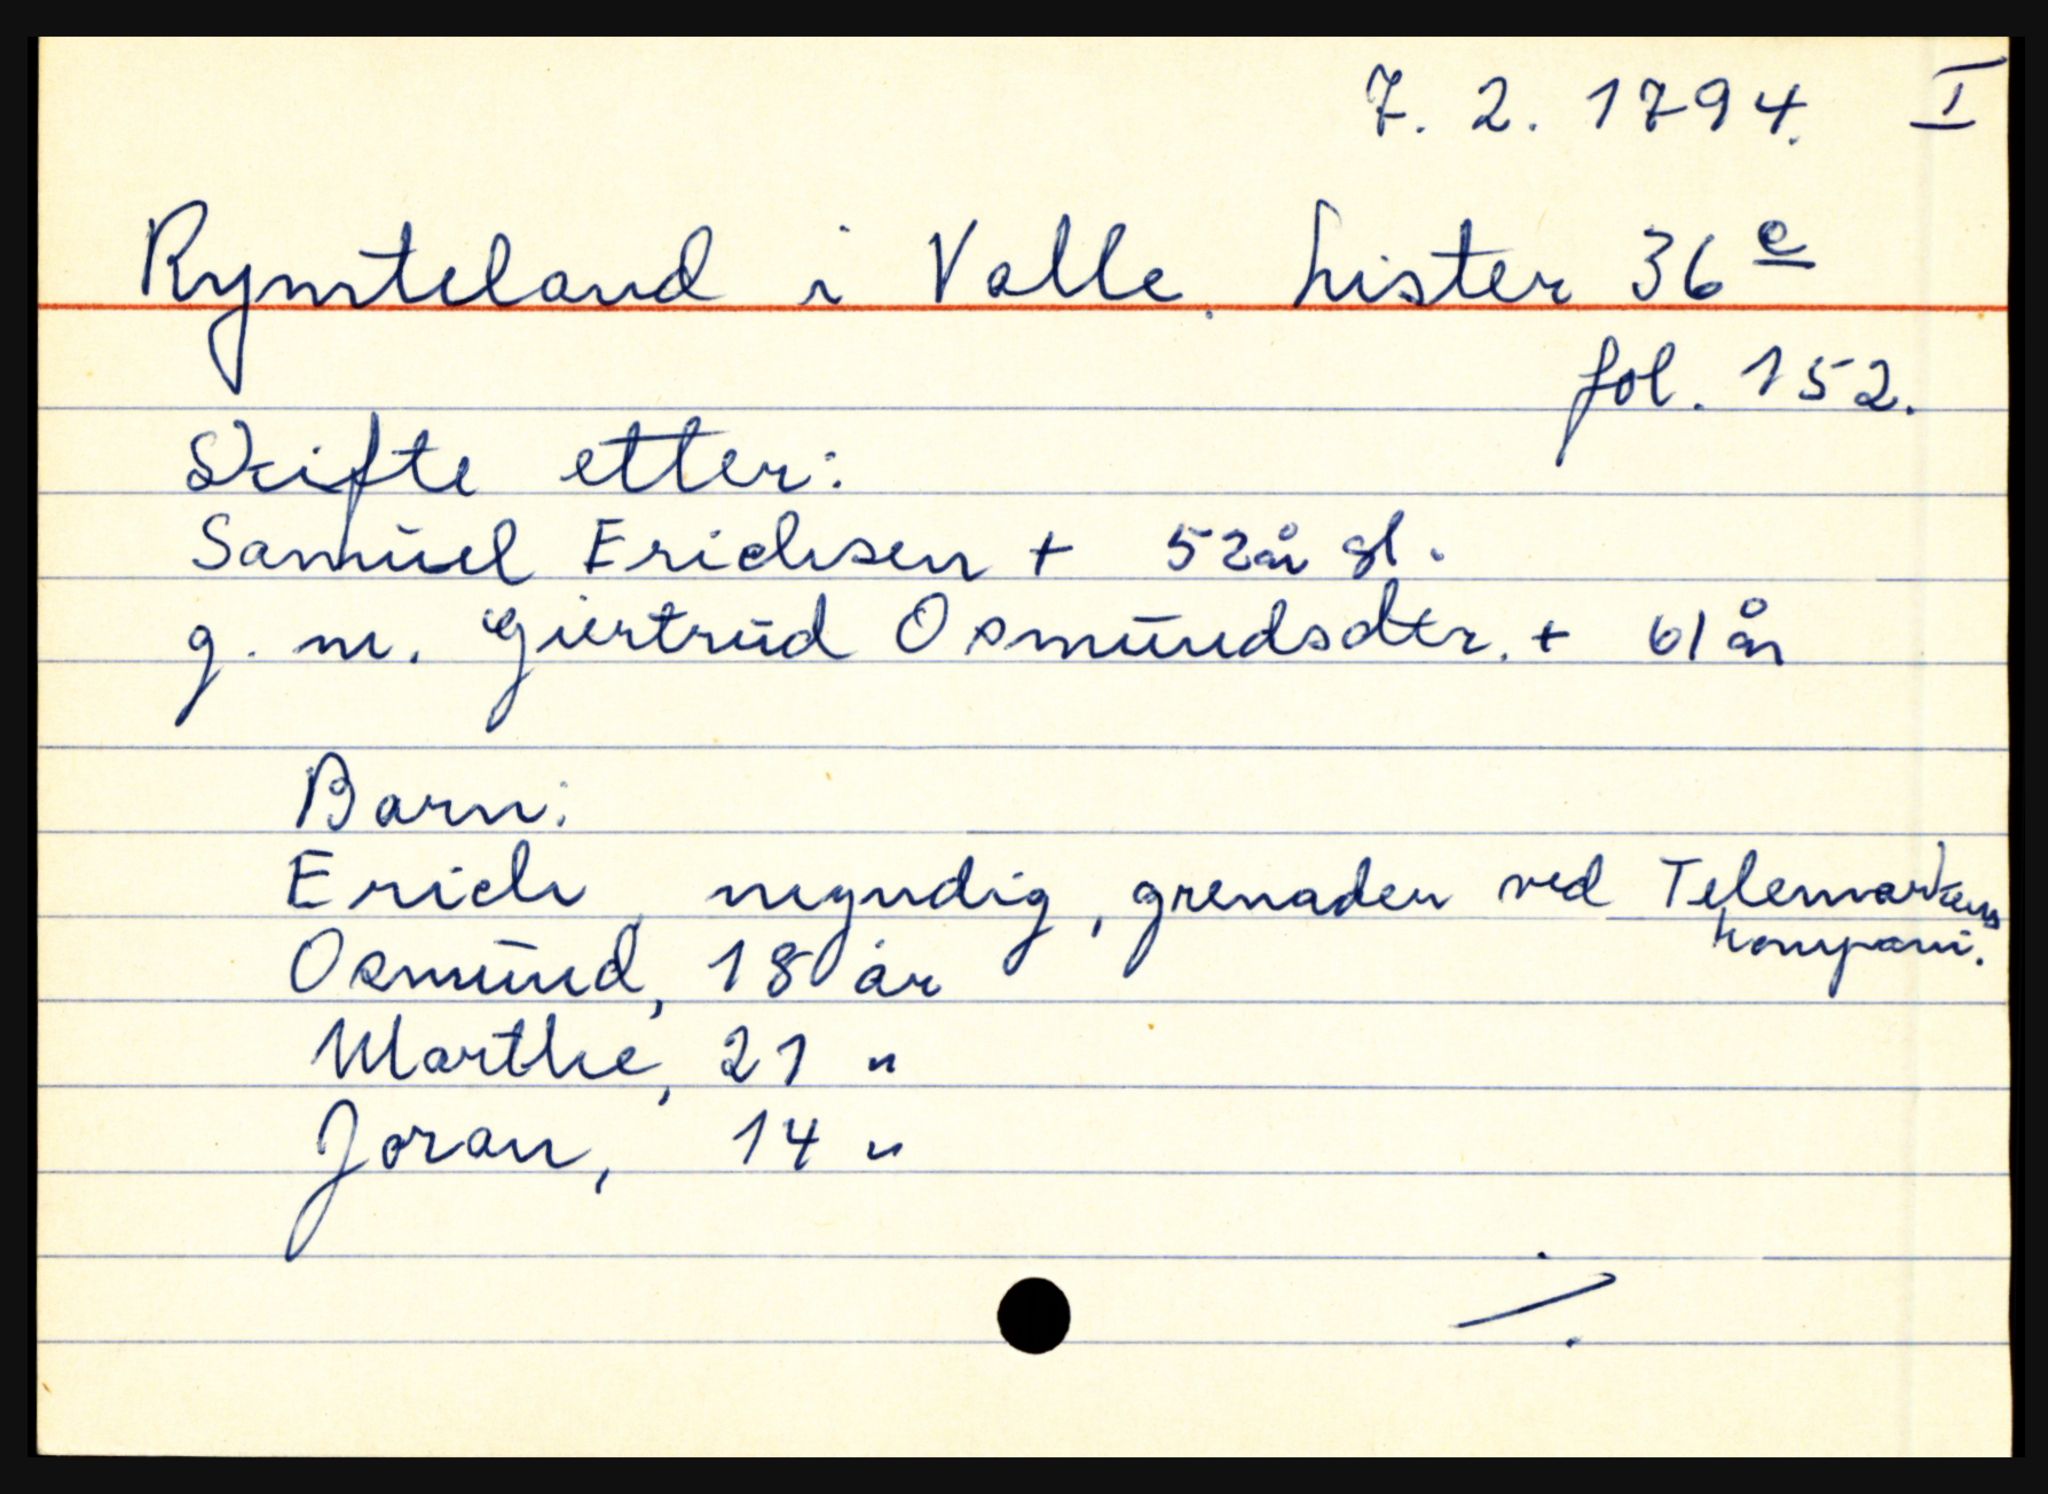 7. 2. 1794. I
Rymteland i Valle. Lister 36 e
fol. 152.
Skifte etter:
Samuel Erichsen + 52 år gl.
g. m. Giertrud Osmundsdtr. + 61 år
Barn:
Erich, myndig, grenader ved Telemarkens
kompani.
Osmund, 18 år
Marthe, 21 "
Joran, 14 "
./.